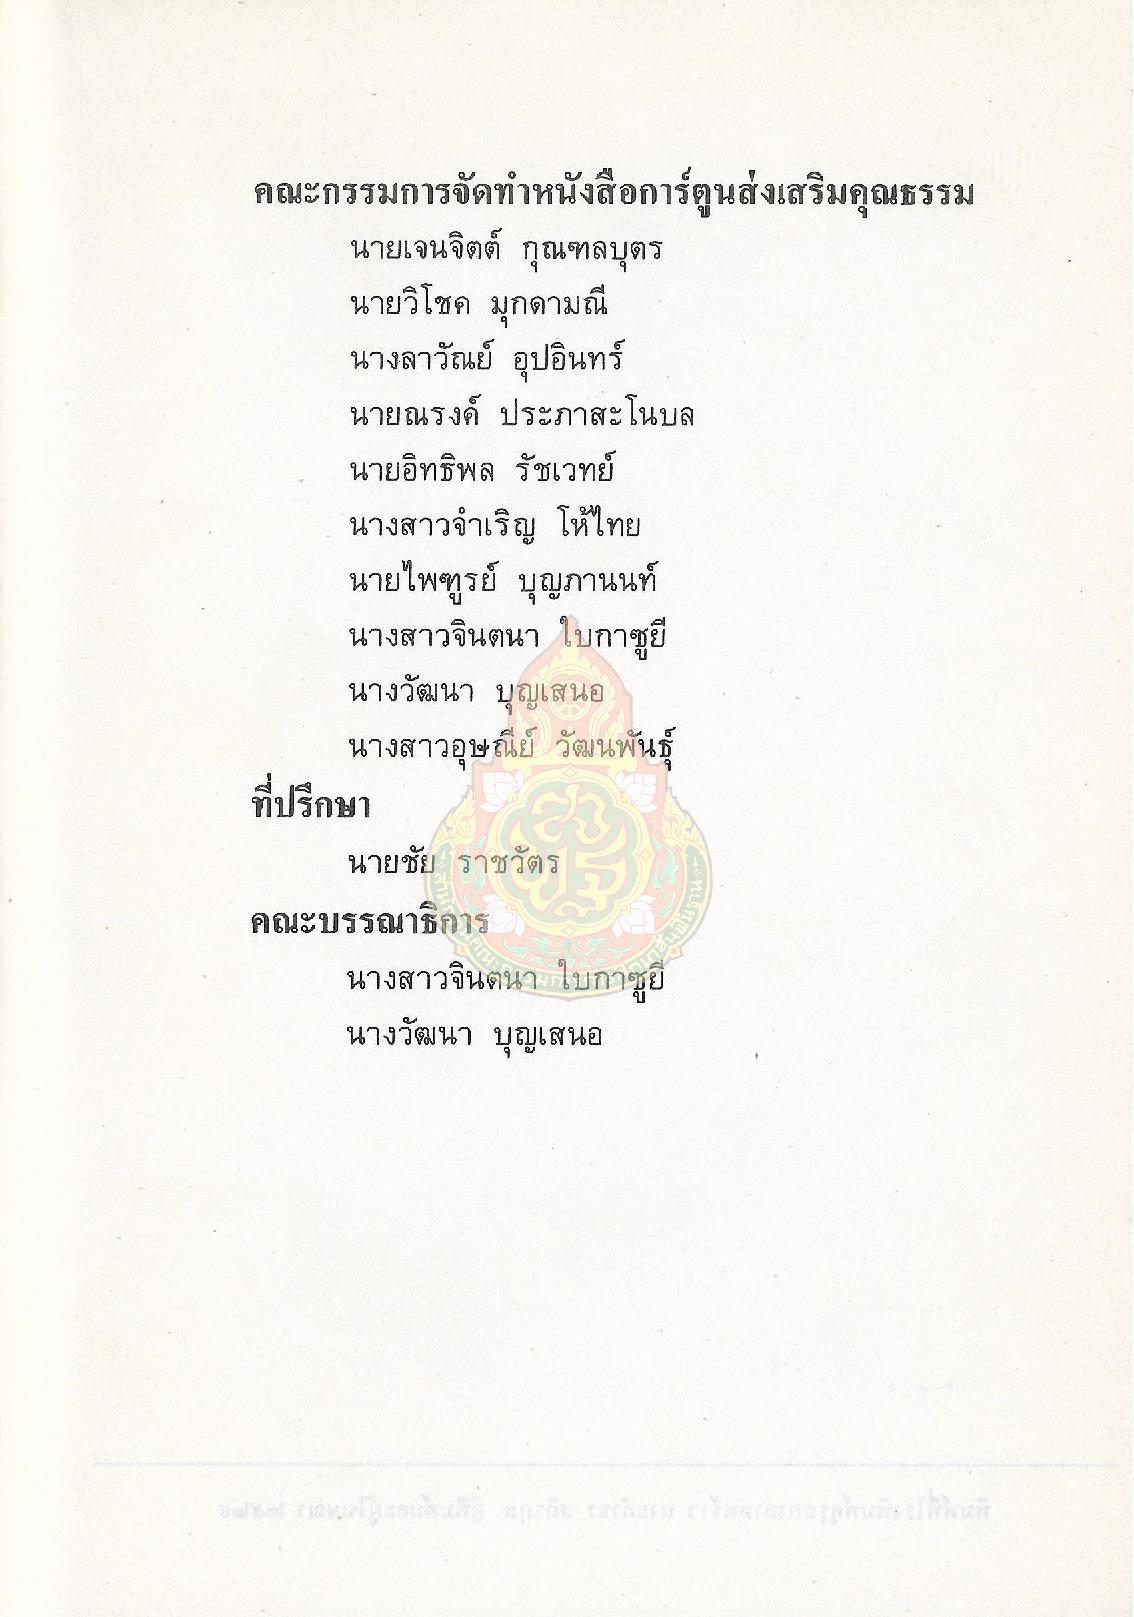 คณะกรรมการจัดทำหนังสือการ์ตูนส่งเสริมคุณธรรม
นายเจนจิตต์ กุณฑลบุตร
นายวิโชค มุกดามณี
นางลาวัณย์ อุปอินทร์
นายณรงค์ ประภาสะโนบล
นายอิทธิพล รัชเวทย์
นางสาวจำเริญ โห้ไทย
นายไพฑูรย์ บุญภานนท์
นางสาวจินตนา ใบกาซูยี
นางวัฒนา บุญเสนอ
นางสาวอุษณีย์ วัฒนพันธุ์
ที่ปรึกษา
นายชัย ราชวัตร
คณะบรรณาธิการ
นางสาวจินตนา ใบกาซูยี
นางวัฒนา บุญเสนอ